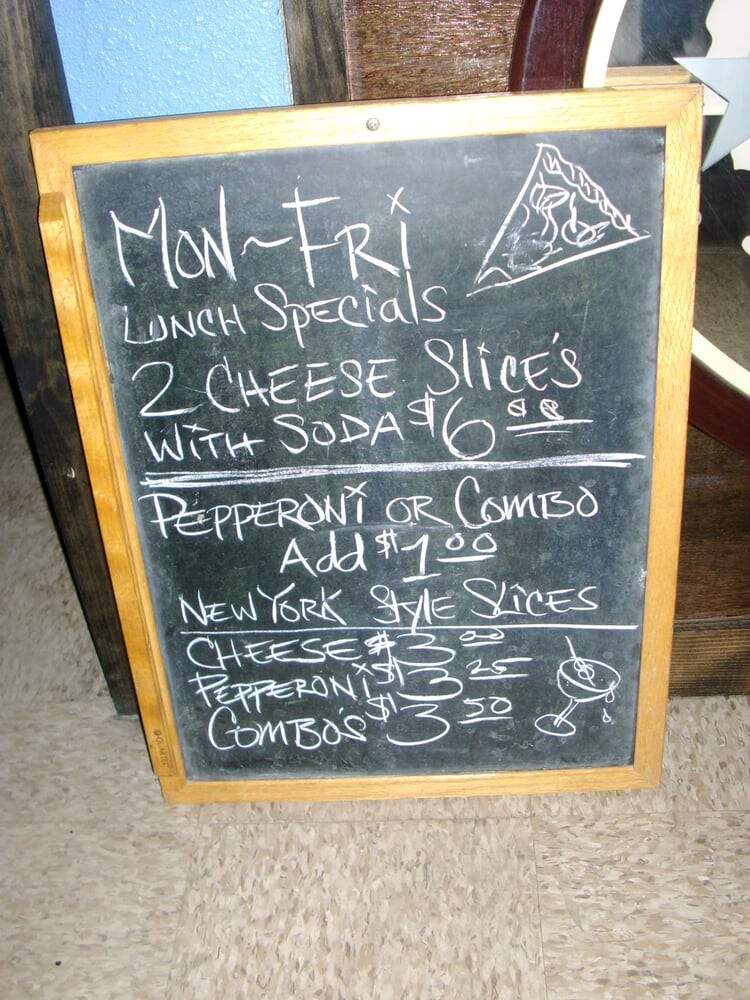 MON~FRi
LUNCH SpeciaLs
2 CHEESE SLiCE'S
WiTH SODA $6 00
PEPPERONi OR COMBO
Add $1 00
NEW YORK StyLE SLiCES
CHEESE $3 00
PEPPERONi $3 25
COMBO'S $3 50
QUARTET